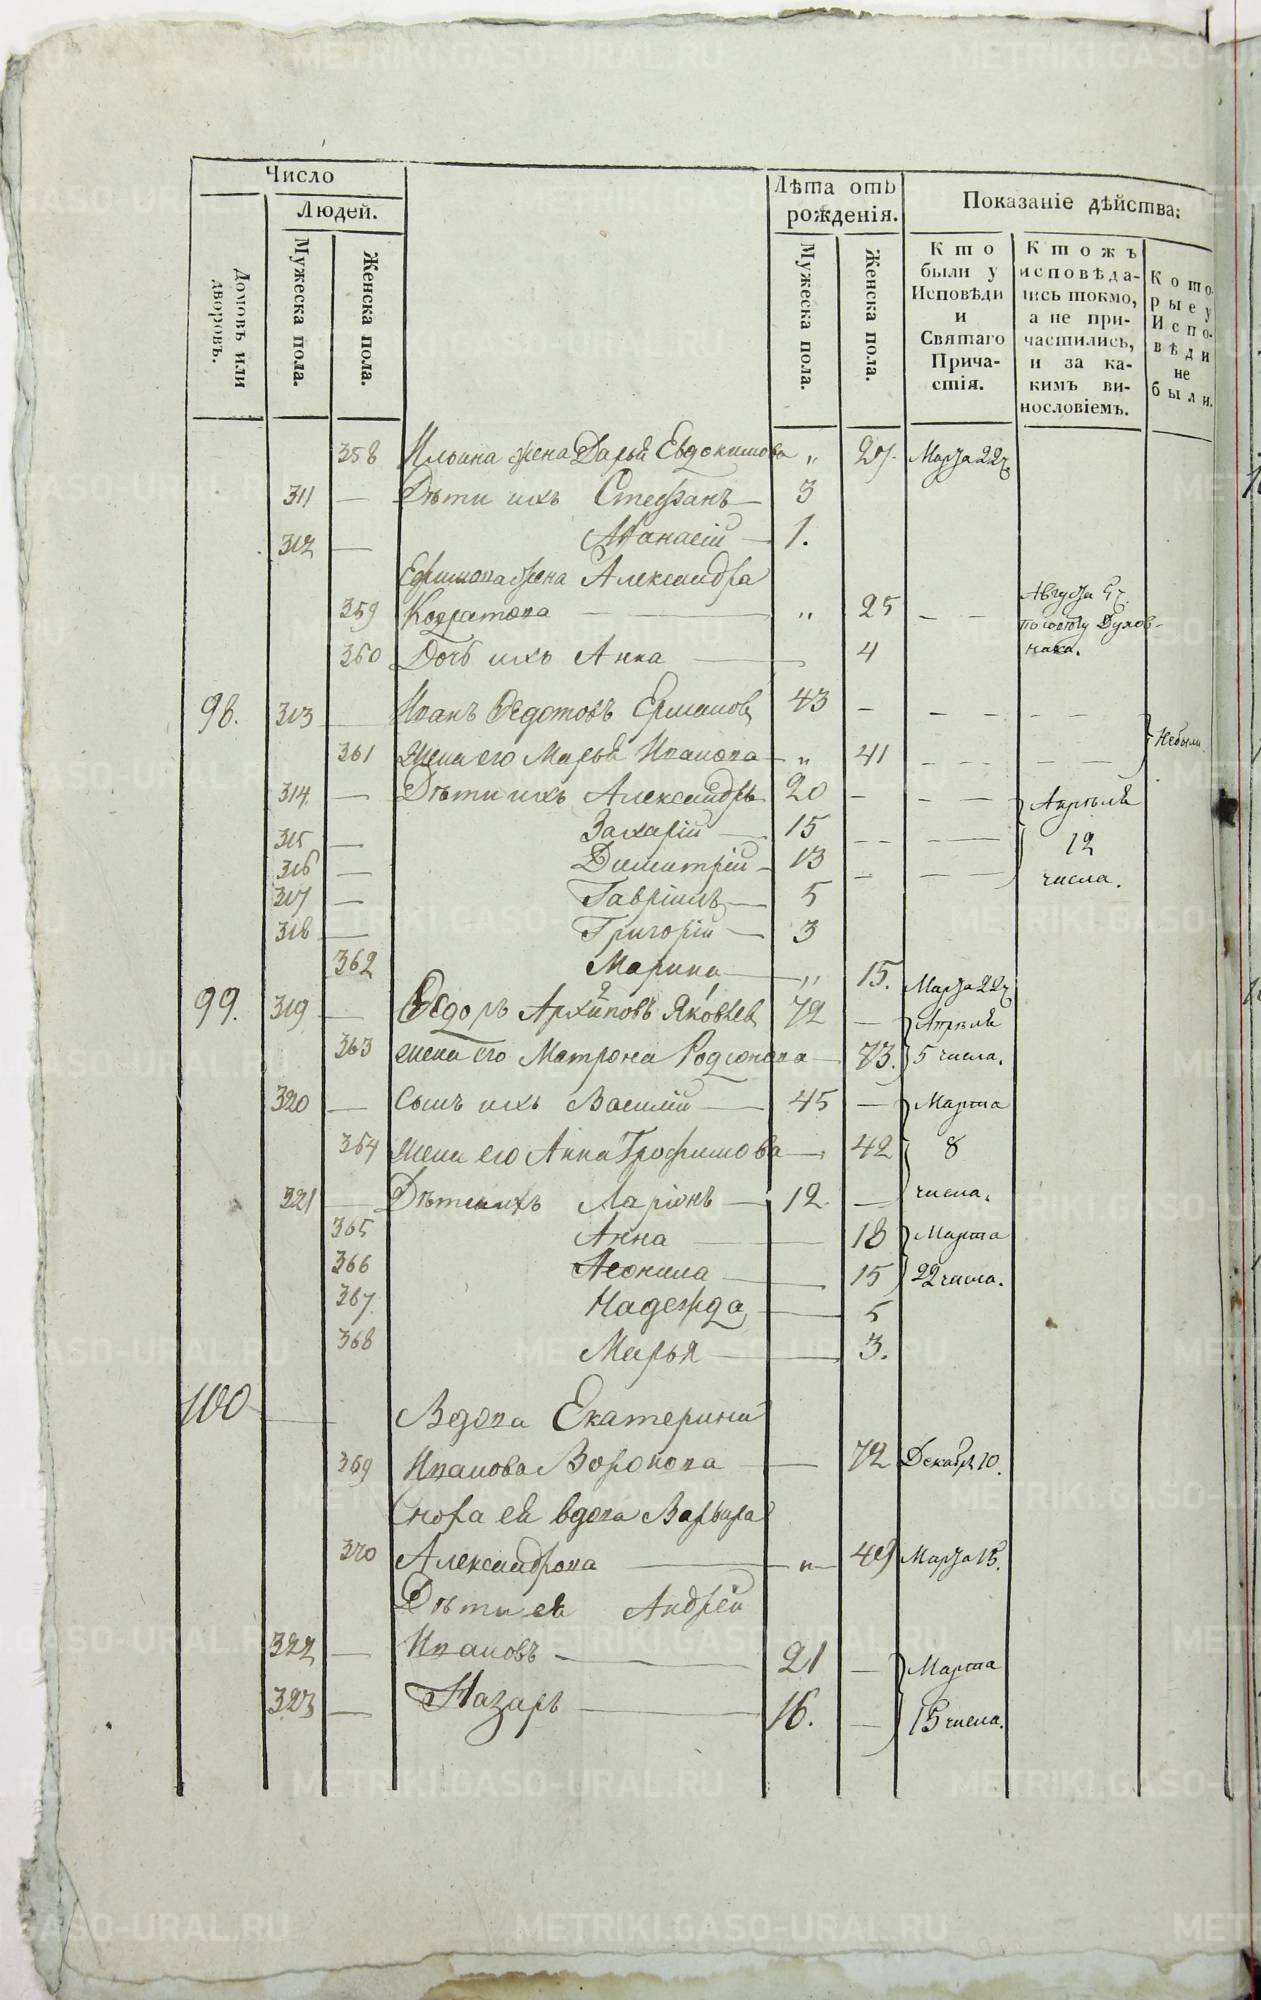 Число
Людей.
Домовъ или дворовъ.
Мужеска пола.
Женска пола.
Лѣта отъ рожденія.
Мужеска пола.
Женска пола.
Показаніе дѣйства:
Кто были у Исповѣди и Святаго Причастія.
Ктожъ исповѣдались токмо, а не причастились, и за какимъ винословіемъ.
Которые у Исповѣди не были.
358 Ильина жена Дарья Евдокимова „ 27. Марта 22
311 — Дѣти ихъ Стефанъ — 3
312 — Афанасій — 1.
Ефимова жена Александра
359 Кодратова — „ 25 — — Августа 5
по совѣту Духовника.
360 Дочь ихъ Анна — 4
98. 313 — Иванъ Ѳедотовъ Ермаков 43 — — — — —
361 Жена его Марья Иванова — „ 41 — — — — — Небыли
314 — Дѣти ихъ Александръ 20 — — — Апрѣля
315 — Захарій — 15 — — — 12
316 — Димитрій — 13 — — — числа.
317 — Гавріилъ — 5
318 — Григорій — 3
362 Марина — „ 15. Марта 22
99. 319 — Ѳедоръ Архиповъ Яковлев 72 — Апрѣля
363 жена его Матрона Родионова — 73. 5 числа.
320 — Сынъ ихъ Василій — 45 — Марта
364 жена его Анна Трофимова — 42 8
321 — Дѣти ихъ Маріонъ — 12 — числа.
365 Анна — 18 Марта
366 Леонила — 15 22 числа.
367 Надежда — 5
368 Марья — 3.
100 — Вдова Екатерина
369 Иванова Воронова — 72 Декабр 10.
Сноха ея вдова Варвара
370 Александрова — „ — 49 Марта 15.
Дѣти ея Андрей
322 — Ивановъ — 21 — Марта
323 — Назаръ — 16. — 15 числа.
METRIKI.GASO-URAL.RU